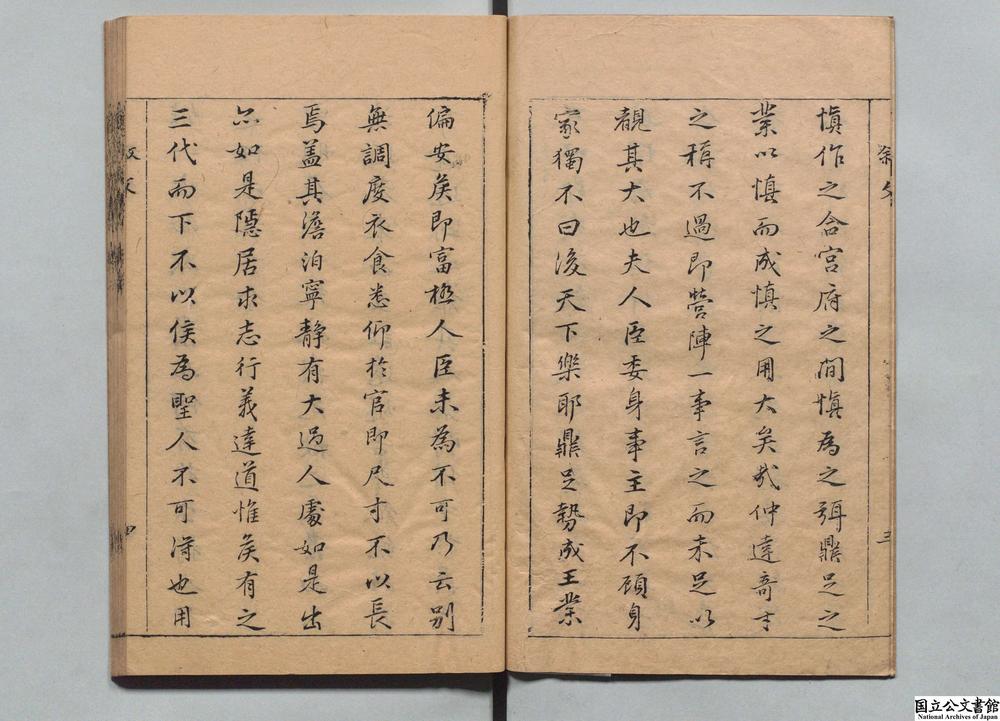 叙文
三
慎作之合宮府之間慎為之弭鼎足之
業以慎而成慎之用大矣哉仲達奇才
之稱不過即營陣一事言之而未足以
覩其大也夫人臣委身事主即不顧身
家獨不曰後天下樂耶鼎足勢成王業
偏安矦即富極人臣未為不可乃云別
無調度衣食悉仰於官即尺寸不以長
焉盖其澹泊寧静有大過人處如是出
亦如是隱居求志行義達道惟矦有之
三代而下不以侯為聖人不可得也用
四
国立公文書館
National Archives of Japan